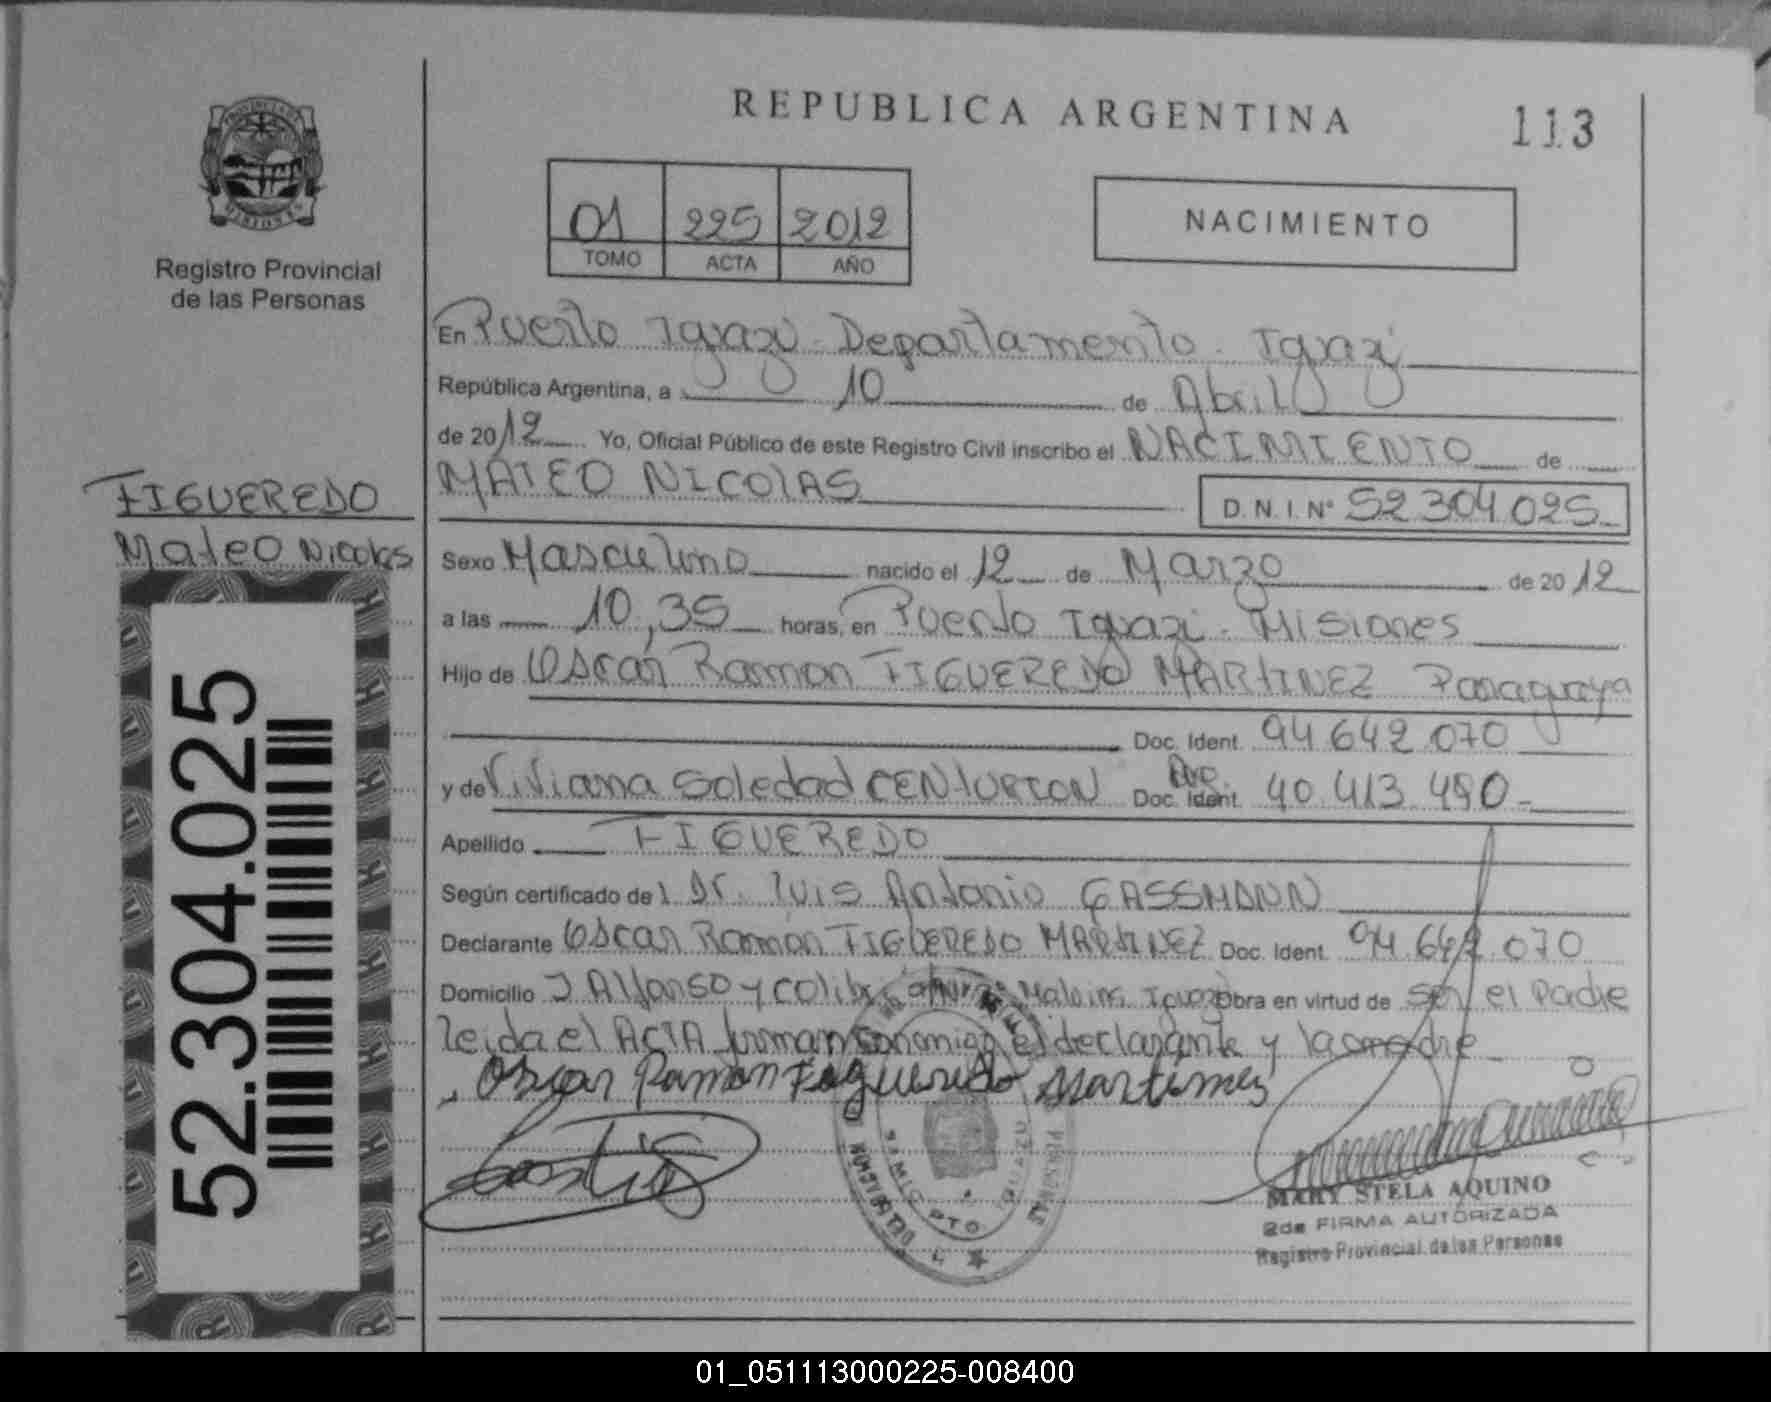 REPUBLICA ARGENTINA
113
01 225 2012
TOMO ACTA AÑO
NACIMIENTO
Registro Provincial
de las Personas
En Puerto Iguazú - Departamento - Iguazú
República Argentina, a 10 de Abril
de 2012 Yo, Oficial Público de este Registro Civil inscribo el NACIMIENTO de
MATEO NICOLAS
D.N.I. N° 52 304 025
FIGUEREDO
Mateo Nicolas
Sexo Masculino nacido el 12 de Marzo de 2012
a las 10,35 horas, en Puerto Iguazi - Misiones
Hijo de Oscar Ramon FIGUEREDO MARTINEZ Paraguaya
Doc. Ident. 94 642 070
y de Viviana Soledad CENTURION Doc. Ident. 40.413.490-
Apellido FIGUEREDO
Según certificado del Dr. Luis Antonio GASSMANN
Declarante Oscar Ramon FIGUEREDO MARTINEZ Doc. Ident. 94.642.070
Domicilio J Alfonso y Colibri Malvinas Iguazi obra en virtud de ser el Padre
leida el ACTA firman conmigo el declarante y la madre
Oscar Ramon Figueredo Martinez
MARY STELA AQUINO
2da FIRMA AUTORIZADA
Registro Provincial de las Personas
52.304.025
01_051113000225-008400